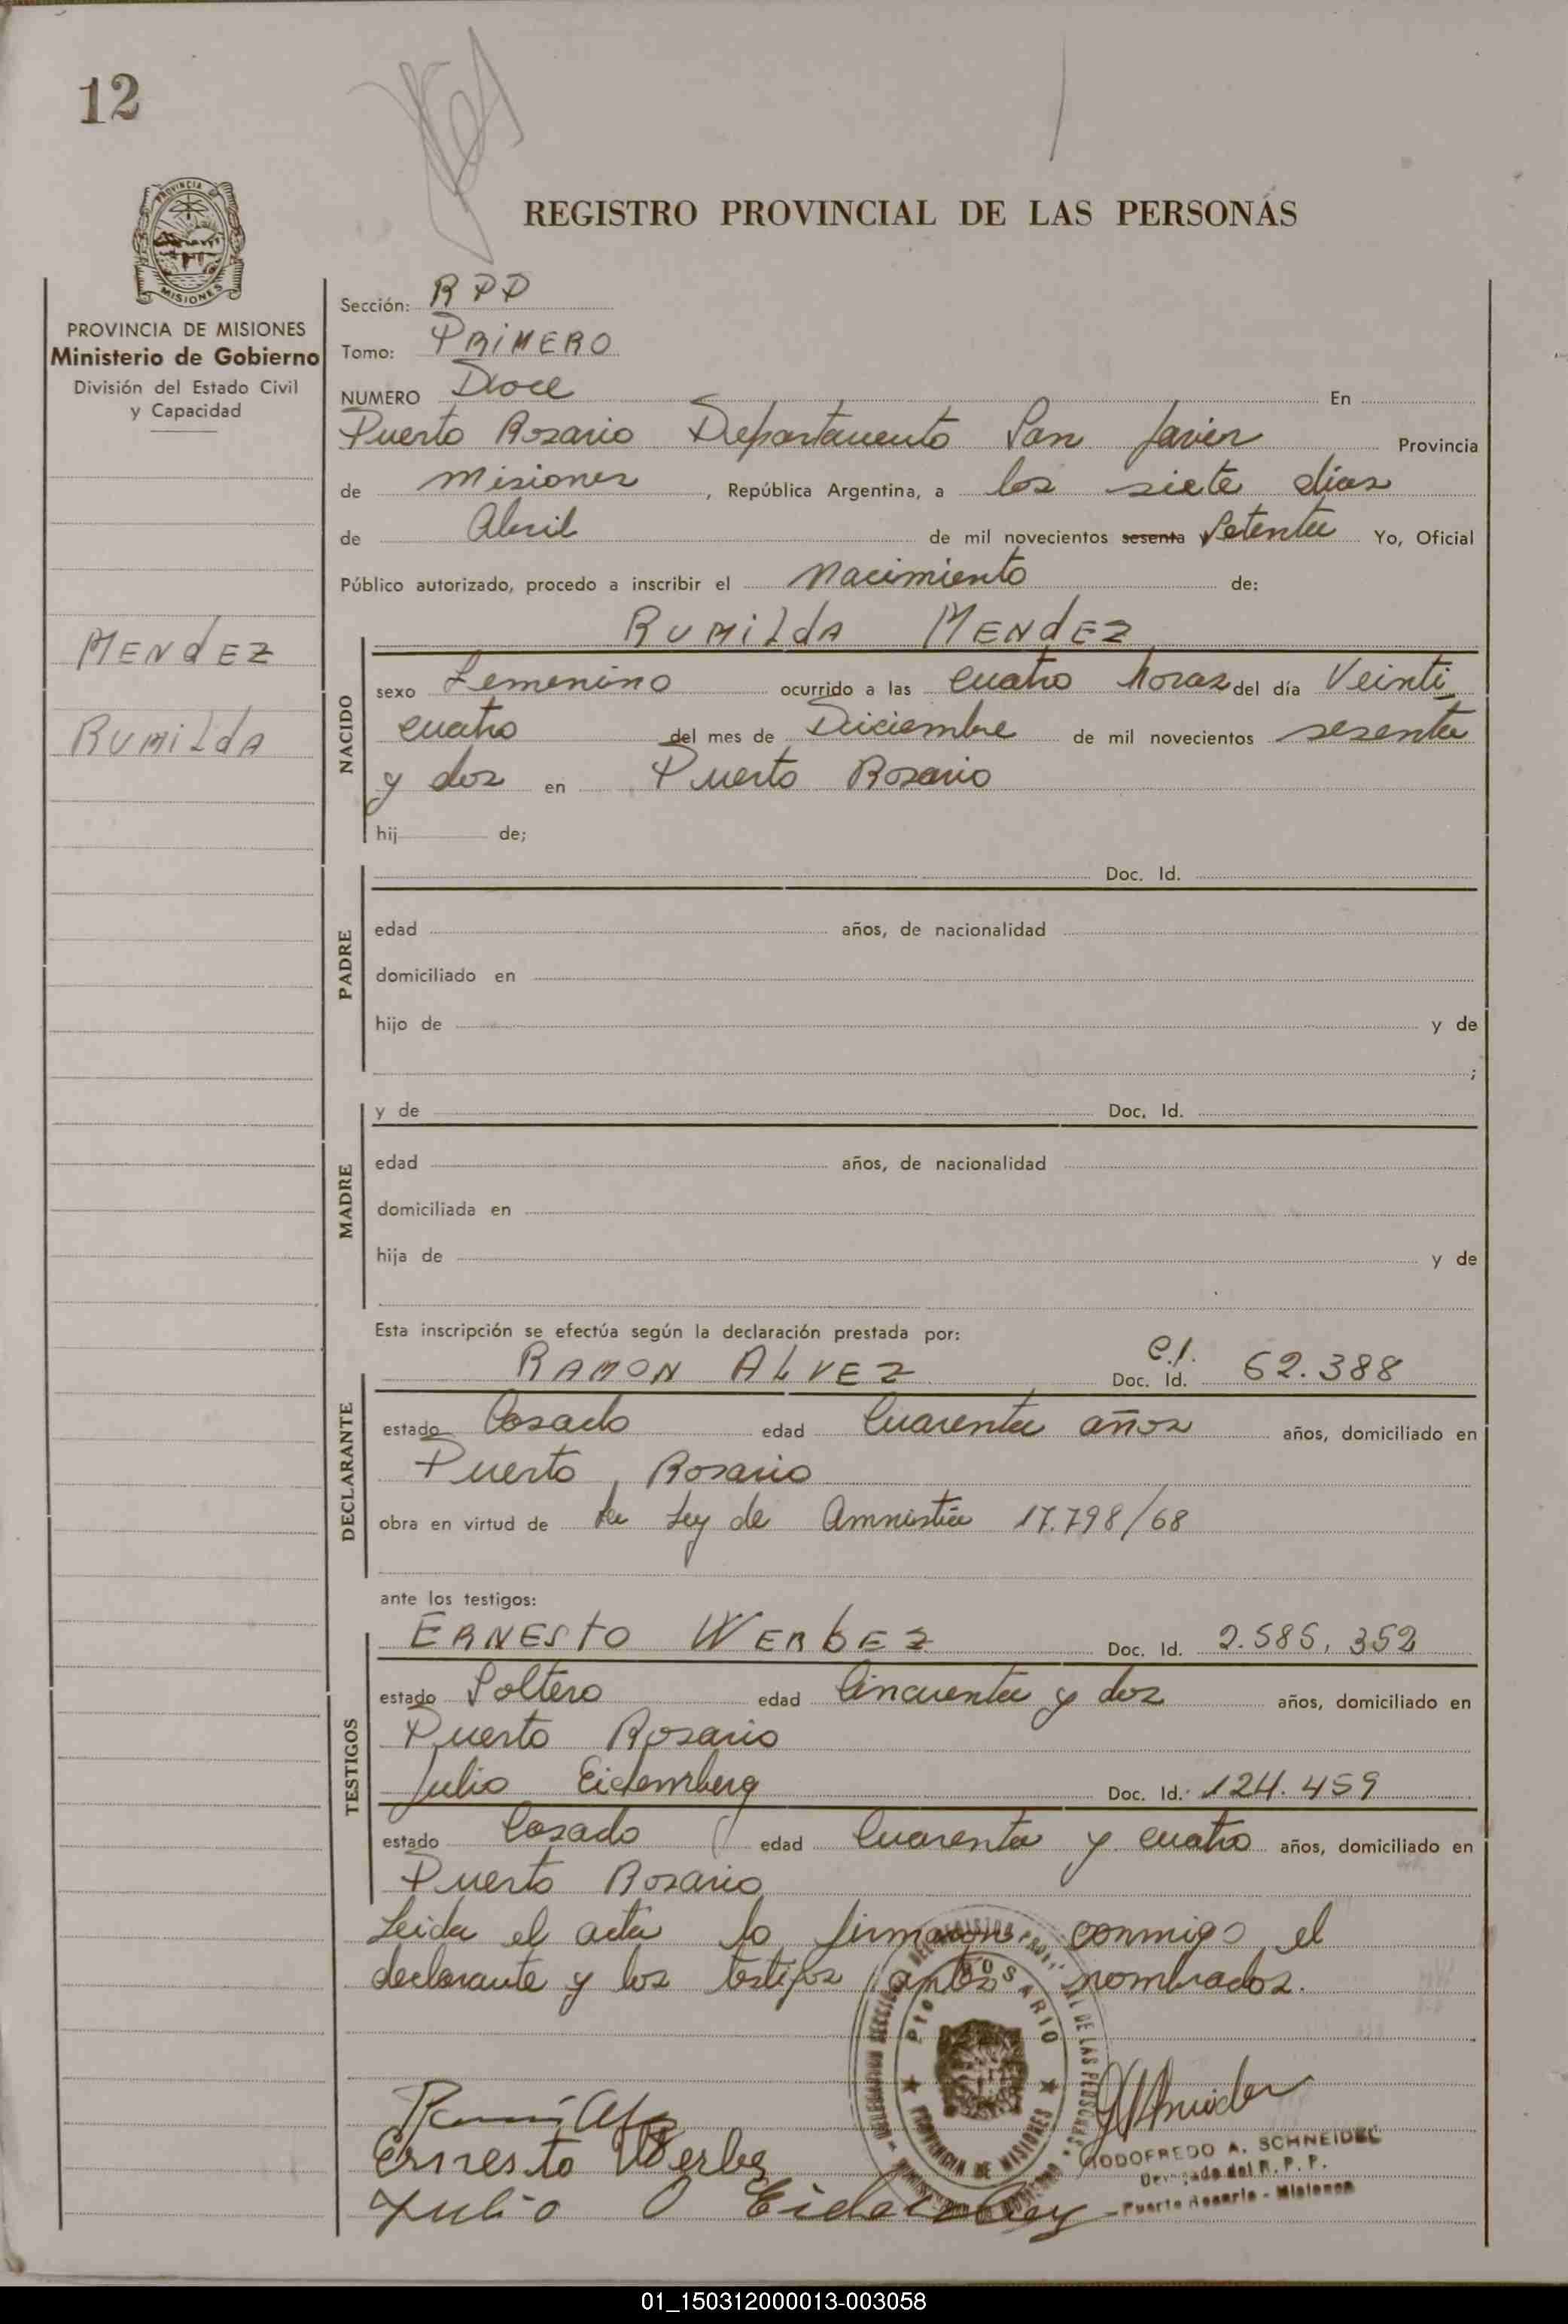 12
REGISTRO PROVINCIAL DE LAS PERSONAS
PROVINCIA
MISIONES
PROVINCIA DE MISIONES
Ministerio de Gobierno
División del Estado Civil
y Capacidad
MENdEZ
RUMILdA
Sección: RPP
Tomo: PRIMERO
NUMERO Doce En
Puerto Rosario Departamento San Javier Provincia
de Misiones, República Argentina, a los siete dias
de Abril de mil novecientos sesenta Setenta Yo, Oficial
Público autorizado, procedo a inscribir el Nacimiento de:
RUMILdA MENdEZ
NACIDO
sexo Femenino ocurrido a las cuatro horas del día Veinti
cuatro del mes de Diciembre de mil novecientos sesenta
y dos en Puerto Rosario
hij de;
PADRE
Doc. Id.
edad años, de nacionalidad
domiciliado en
hijo de y de
;
MADRE
y de Doc. Id.
edad años, de nacionalidad
domiciliada en
hija de y de
Esta inscripción se efectúa según la declaración prestada por:
DECLARANTE
RAMON ALVEZ Doc. Id. C.I. 62.388
estado Casado edad Cuarenta años años, domiciliado en
Puerto Rosario
obra en virtud de la Ley de Amnistia 17.798/68
ante los testigos:
TESTIGOS
ERNESTO WERbEZ Doc. Id. 2.585,352
estado Soltero edad Cincuenta y dos años, domiciliado en
Puerto Rosario
Julio Doc. Id. 124.459
estado Casado edad Cuarenta y cuatro años, domiciliado en
Puerto Rosario
Leida el acta lo firmaron conmigo el
declarante y los testigos antes nombrados.
Pto ROSARIO
PROVINCIA DE MISIONES
Ernesto Werbe
Julio O
GODOFREDO A. SCHNEIDEL
Delegado del R. P. P.
Puerto Rosario - Misiones
01_150312000013-003058